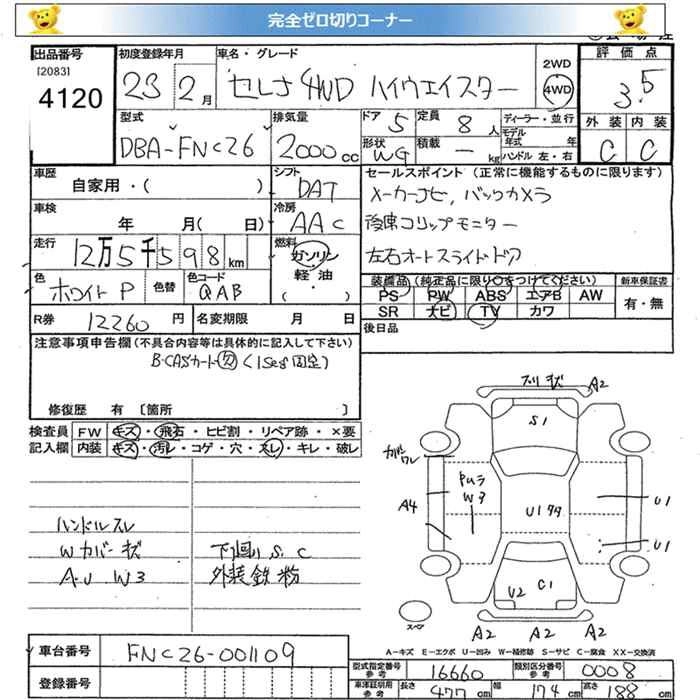 完全ゼロ切りコーナー
出品番号
[2083]
4120
初度登録年月
23 2月
車名・グレード
セレナ 4WD ハイウエイスター
2WD
4WD
評価点
3.5
外装 内装
C C
型式
DBA-FNC26
排気量
2000cc
ドア 5
定員 8人
形状 WG
積載 ー kg
ディーラー・並行
モデル年式 年
ハンドル 左・右
車歴
自家用・( )
シフト
DAT
セールスポイント (正常に機能するものに限ります)
メーカーナビ, バックカメラ
後席フリップモニター
左右オートスライドドア
車検
年 月( 日)
冷房
AAC
走行
12万5千598km
燃料
ガソリン
軽油
・( )
色
ホワイトP
色替
色コード
QAB
装備品 (純正品に限り○をつけてください)
PS PW ABS エアB AW
SR ナビ TV カワ
新車保証書
有・無
R券 12260円
名変期限 月 日
後日品
注意事項申告欄 (不具合内容等は具体的に記入して下さい)
B-CASカード欠 (1seg固定)
修復歴 有 〔箇所 〕
検査員
記入欄
FW キズ・飛石・ヒビ割・リペア跡・×要
内装 キズ・汚レ・コゲ・穴・スレ・キレ・破レ
ハンドルスレ
Wカバー状
A.U W3
下廻り S.C
外装鉄粉
A2
S1
A4
W3
U1
U1
U1
U2
C1
スペア
A2 A2 A2
A-キズ E-エクボ U-凹み W-補修跡 S-サビ C-腐食 XX-交換済
車台番号
FNC26-001109
登録番号
型式指定番号 参考
16660
類別区分番号 参考
0008
車庫証明用 参考
長さ 477cm
幅 174cm
高さ 188cm